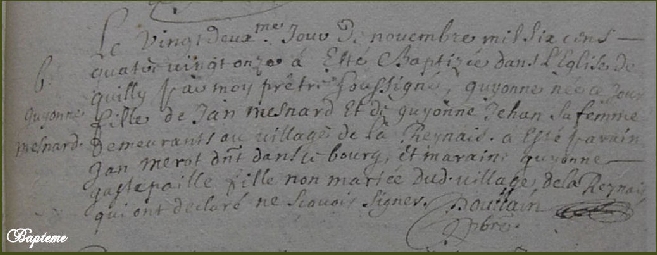 Le vingt deux.me Jour de novembre mil six cens
quatre vingt onze a Esté Baptizée dans L'Eglise de
b.
quilly par moy prêtre soussigné, guyonne née ce Jour
guyonne
fille de Jan mesnard Et de guyonne Jehan sa femme
mesnard.
demeurants au village de la Reynais. a Esté parain
Jan merot dnt dans le bourg, et maraine guyonne
gastepaille fille non mariée dud. village de la Reynais
qui ont declaré ne sçavoir signer.
pbre
Bapteme